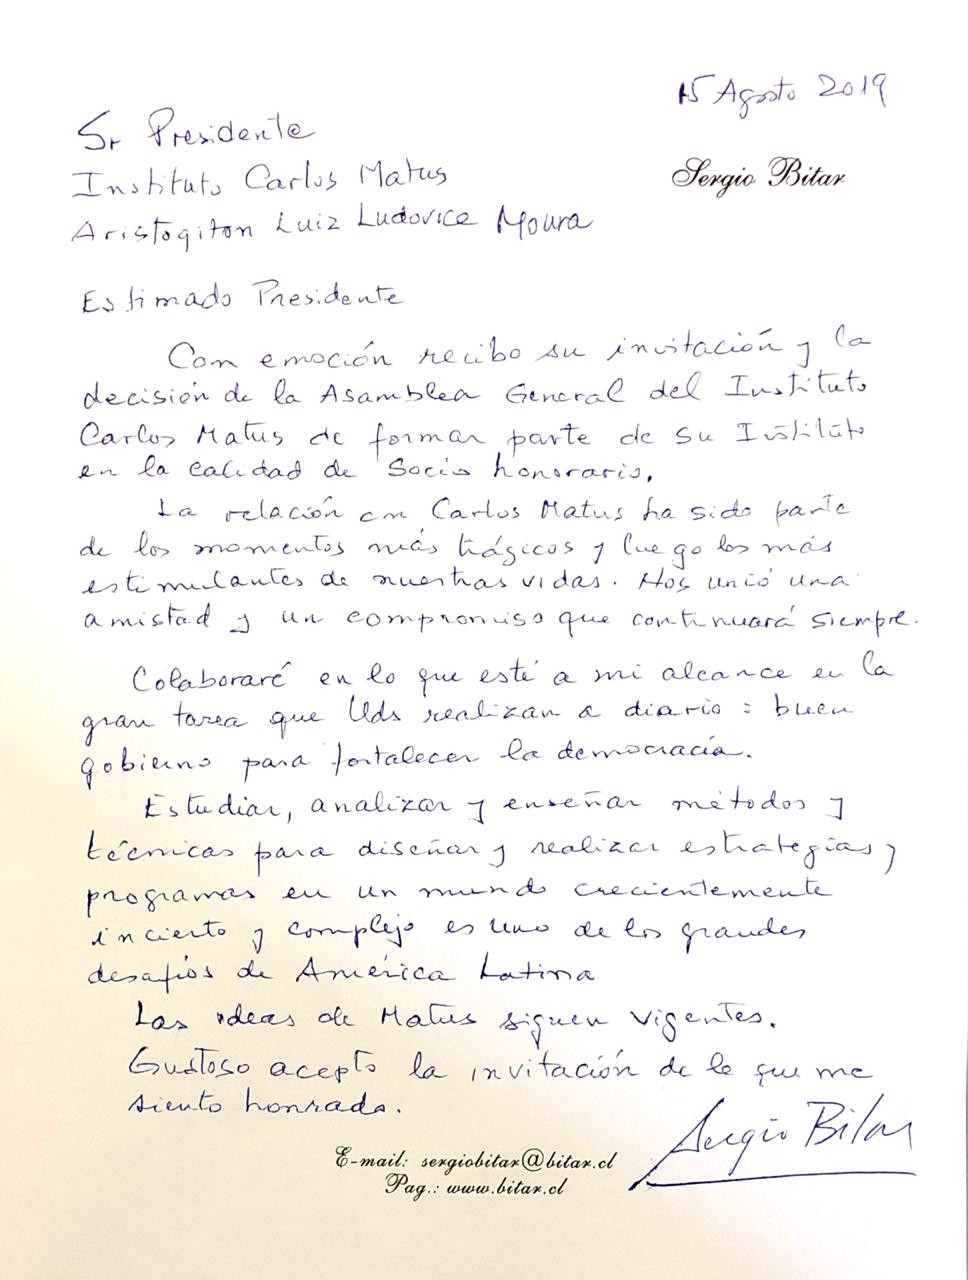 15 Agosto 2019
Sergio Bitar
Sr Presidente
Instituto Carlos Matus
Aristogiton Luiz Ludovice Moura
Estimado Presidente
Con emoción recibo su invitación y la
decisión de la Asamblea General del Instituto
Carlos Matus de formar parte de su Instituto
en la calidad de Socio honorario.
La relación con Carlos Matus ha sido parte
de los momentos más trágicos y luego los más
estimulantes de nuestras vidas. Nos unió una
amistad y un compromiso que continuará siempre.
Colaboraré en lo que esté a mi alcance en la
gran tarea que Uds realizan a diario : buen
gobierno para fortalecer la democracia.
Estudiar, analizar y enseñar métodos y
técnicas para diseñar y realizar estrategias y
programas en un mundo crecientemente
incierto y complejo es uno de los grandes
desafíos de América Latina
Las ideas de Matus siguen vigentes.
Gustoso acepto la invitación de lo que me
siento honrado.
Sergio Bitar
E-mail: sergiobitar@bitar.cl
Pag.: www.bitar.cl